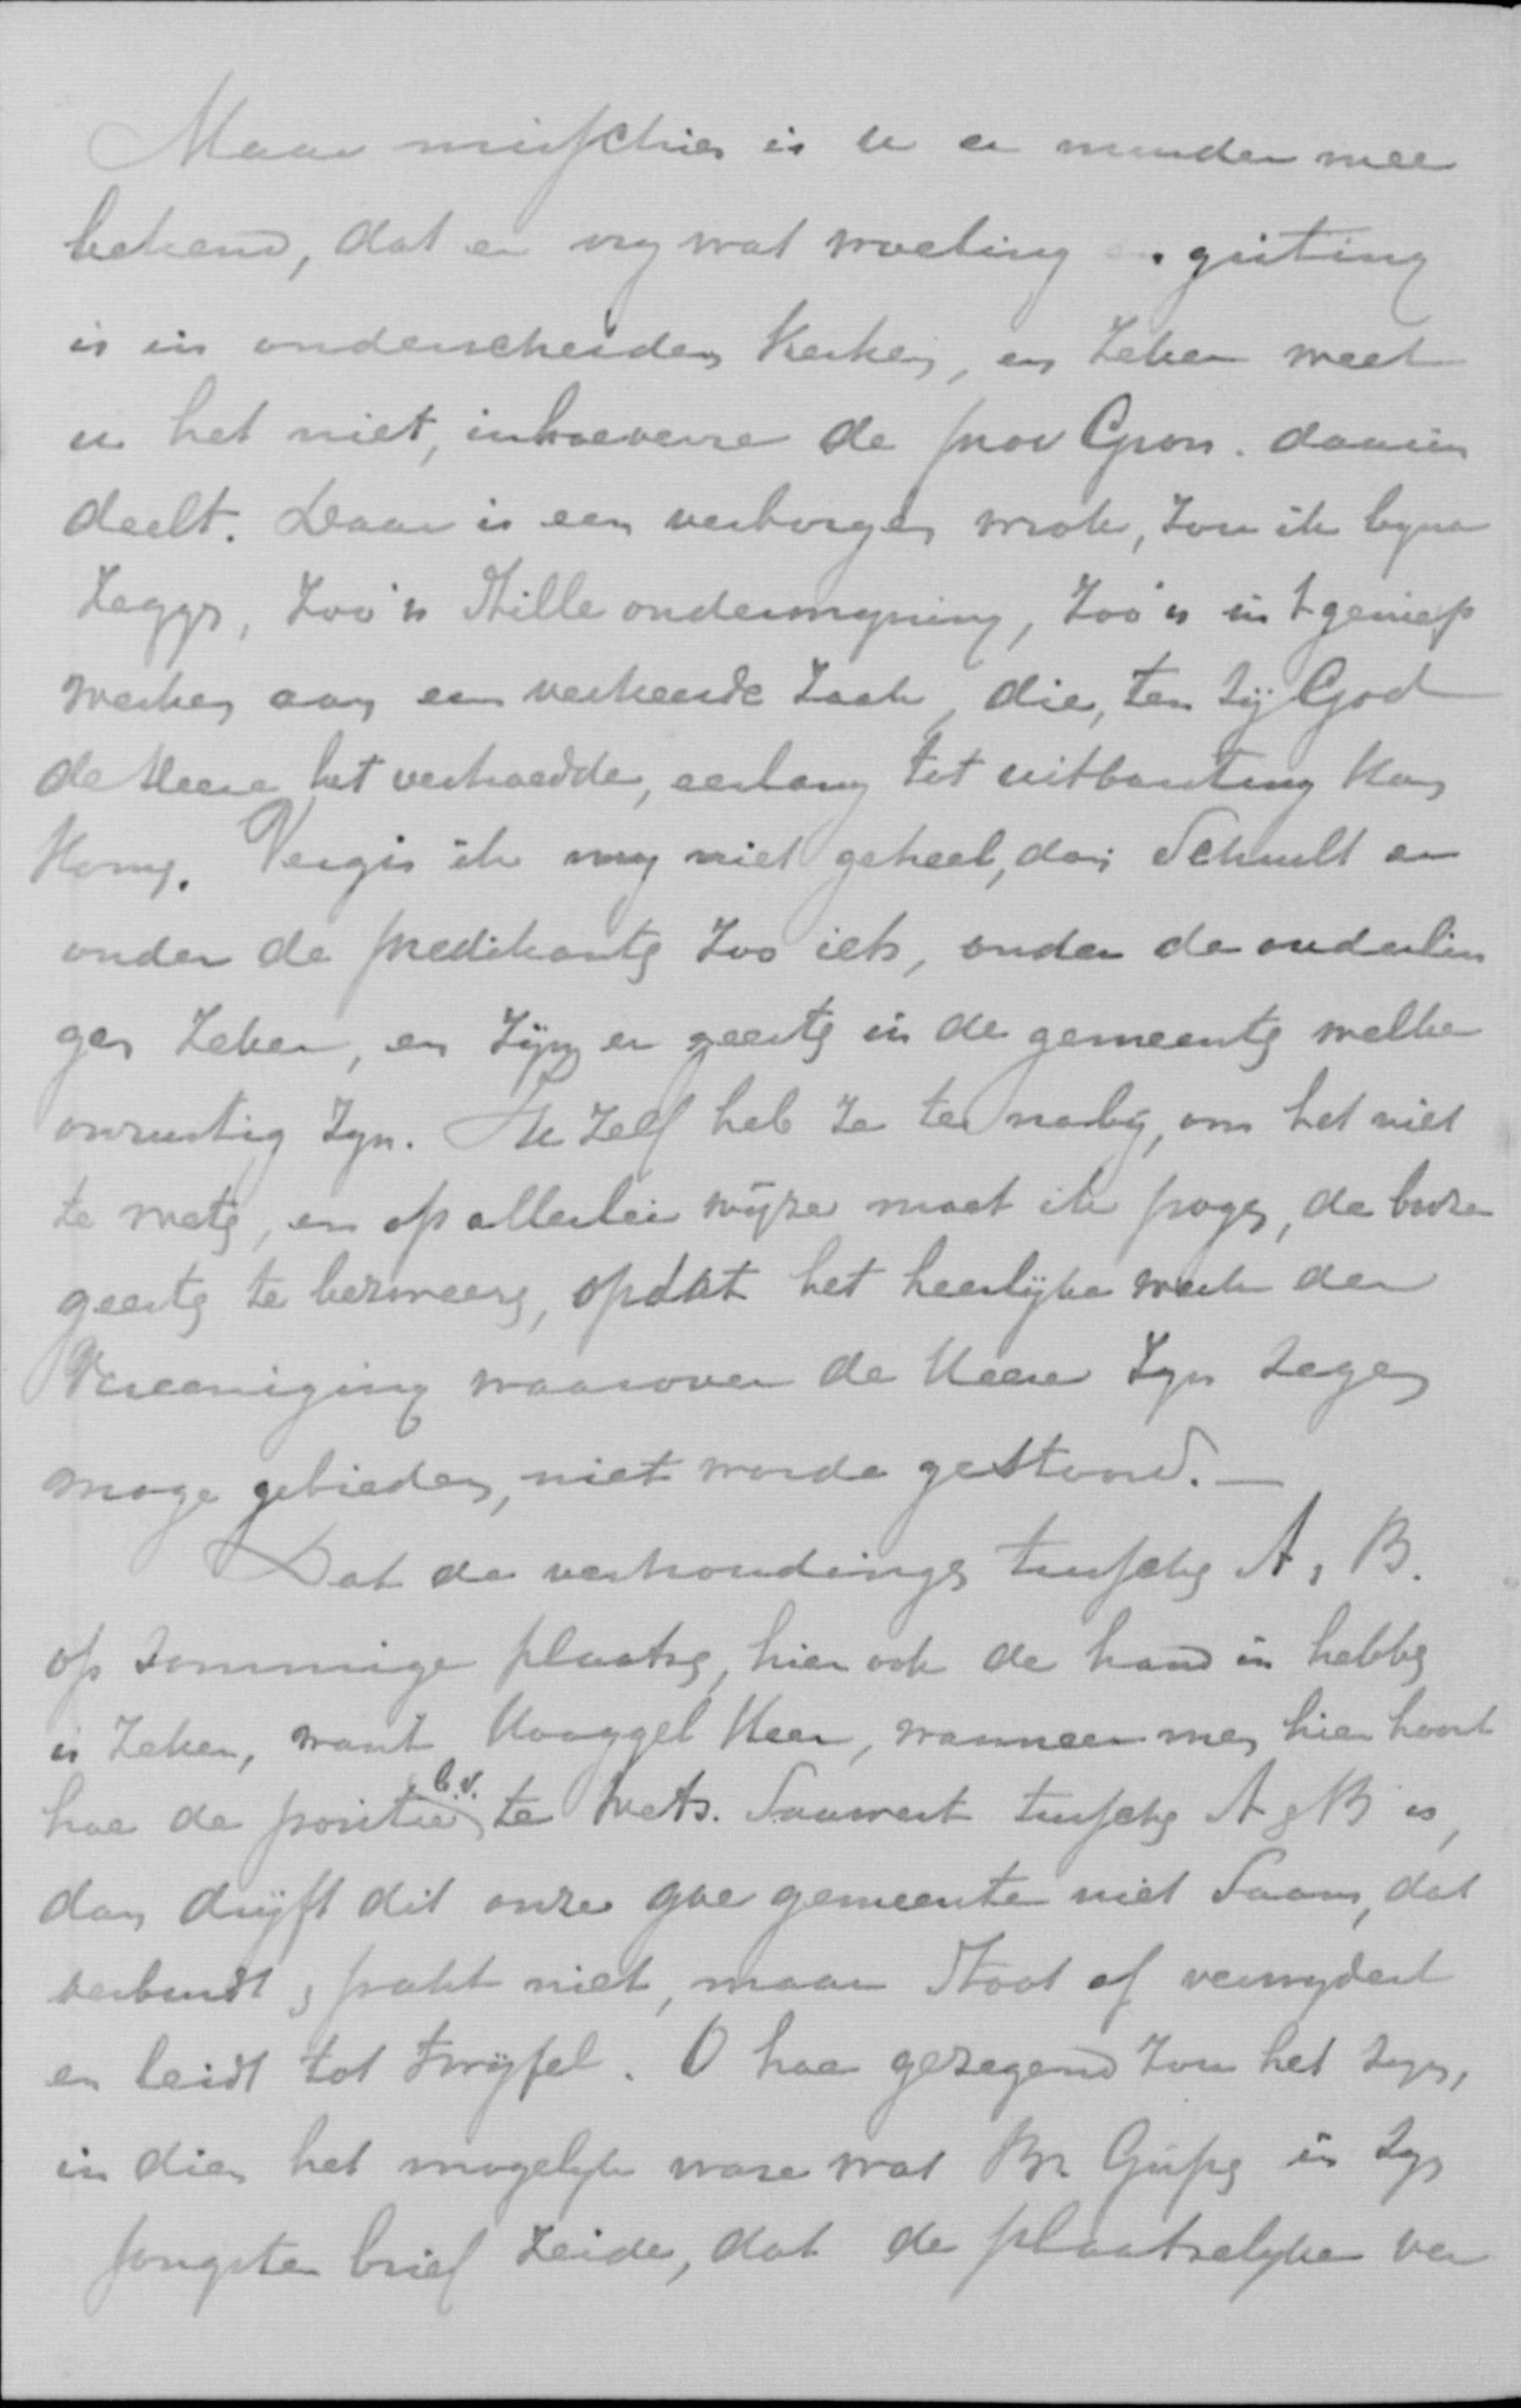 Maar misschien is u er minder mee
bekend, dat er vry wat woeling en gisting
is in onderscheiden Kerken, en Zeker weet
u het niet, inhoeverre de prov Gron. daarin
deelt. Daar is een verborgen wrok, zou ik byna
Zeggen, Zoo'n Stille ondermyning, Zoo'n in 't geniep
werken aan een verkeerde Zaak, die, ten Zij God
de Heere het verhoedde, eerlang tot uitbarsting kan
Komen. Vergis ik my niet geheel, dan Schuilt er
onder de predikanten Zoo iets, onder de ouderlin
gen Zeker, en Zijn er geesten in de gemeenten welke
onrustig Zyn. Ik Zelf heb Ze te naby, om het niet
te weten, en op allerlei wijze moet ik pogen, de booze
geesten te bezweeren, opdat het heerlijke werk der
Vereeniging waarover de Heere Zyn Zegen
moge gebieden, niet worde gestoord. —
Dat de verhoudingen tusschen A & B.
op Sommige plaatsen, hier ook de hand in hebben
is Zeker, want Hooggel Heer, wanneer men hier hoort
hoe de positie b.v. te Wets. Sauwert tusschen A & B is,
dan drijft dit onze gve gemeente niet Saam, dat
verbindt & pakt niet, maar Stoot af verwydert
en leidt tot twijfel. O hoe gezegend Zou het Zyn,
in dien het mogelyk ware wat Br. Gispen in Zyn
jongsten brief Zeide, dat de plaatselyke ver